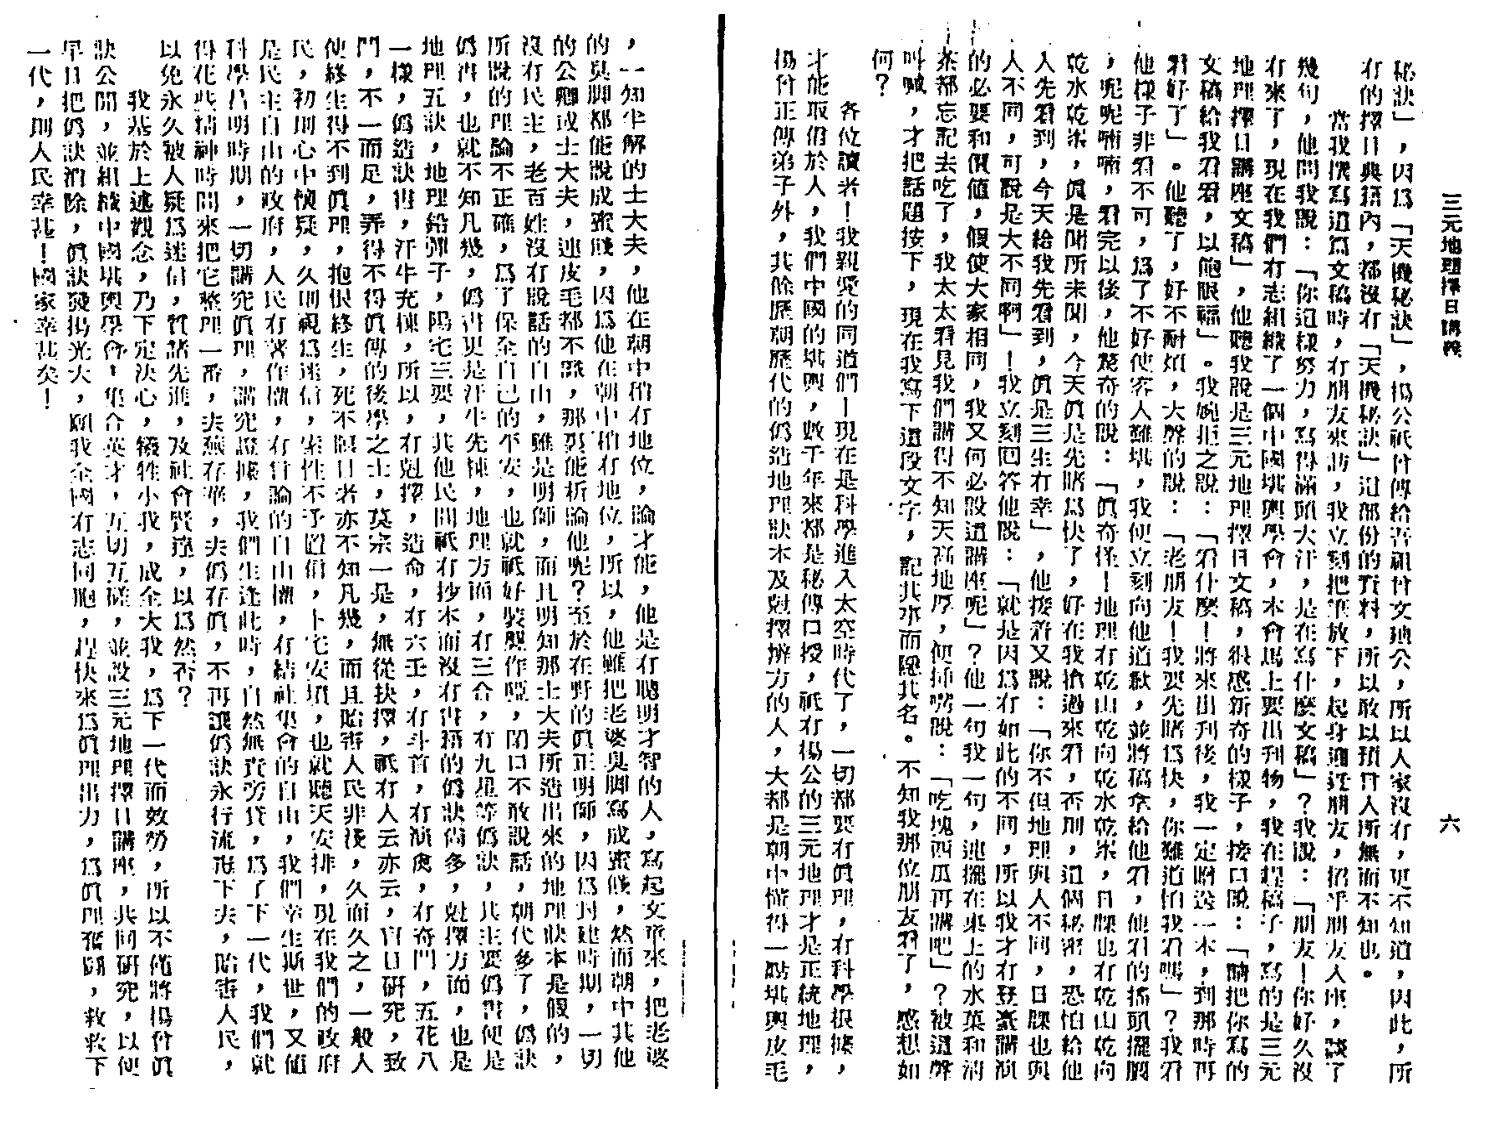 三元地理擇日講義
六
秘訣」，因為「天機秘訣」，楊公祇曾傳給吾祖曾文迪公，所以人家沒有，更不知道，因此，所
有的擇日典籍內，都沒有「天機秘訣」這部份的資料，所以敢以預賀人所無而不知也。
當我撰寫這篇文稿時，有朋友來訪，我立刻把筆放下，起身迎接朋友，招乎朋友入座，談了
幾句，他問我說：「你這樣努力，寫得滿頭大汗，是在寫什麼文稿」？我說：「朋友！你好久沒
有來了，現在我們有志組織了一個中國堪輿學會，本會馬上要出刊物，我在趕稿子，寫的是三元
地理擇日講座文稿」，他聽我說是三元地理擇日文稿，很感新奇的樣子，接口說：「請把你寫的
文稿給我看看，以飽眼福」。我婉拒之說：「看什麼！將來出刊後，我一定贈送一本，到那時再
看好了」。他聽了，好不耐煩，大聲的說：「老朋友！我要先睹為快，你難道怕我看嗎」？我看
他樣子非看不可，為了不好使客人難堪，我便立刻向他道歉，並將稿拿給他看，他看的搖頭擺腦
，呢呢喃喃，看完以後，他驚奇的說：「真奇怪！地理有乾山乾向乾水乾峯，日課也有乾山乾向
乾水乾峯，真是聞所未聞，今天真是先睹為快了，好在我搶過來看，否則，這個秘密，恐怕給他
人先看到，今天給我先看到，真是三生有幸」，他接著又說：「你不但地理與人不同，日課也與
人不同，可說是大不同啊」！我立刻回答他說：「就是因為有如此的不同，所以我才有登臺講演
的必要和價值，假使大家相同，我又何必設這講座呢」？他一句我一句，連擺在桌上的水菓和清
茶都忘記去吃了，我太太看見我們講得不知天高地厚，便插嘴說：「吃塊西瓜再講吧」？被這聲
叫喊，才把話題按下，現在我寫下這段文字，記其事而隱其名。不知我那位朋友看了，感想如
何？
各位讀者！我親愛的同道們！現在是科學進入太空時代了，一切都要有真理，有科學根據，
才能取信於人，我們中國的堪輿，數千年來都是秘傳口授，祇有楊公的三元地理才是正統地理，
楊曾正傳弟子外，其餘歷朝歷代的偽造地理訣本及尅擇辨方的人，大都是朝中懂得一點堪輿皮毛
，一知半解的士大夫，他在朝中稍有地位，論才能，他是有聰明才智的人，寫起文章來，把老婆
的臭脚都能說成蜜餞，因為他在朝中稍有地位，所以，他雖把老婆臭脚寫成蜜餞，然而朝中其他
的公卿或士大夫，連皮毛都不識，那裏能析論他呢？至於在野的真正明師，因為封建時期，一切
沒有民主，老百姓沒有說話的自由，雖是明師，而且明知那士大夫所造出來的地理訣本是假的，
所說的理論不正確，為了保全自己的平安，也就祇好裝聾作啞，閉口不敢說話，朝代多了，偽訣
偽書，也就不知凡幾，偽書更是汗牛充棟，地理方面，有三合，有九星等偽訣，其主要偽書便是
地理五訣，地理鉛彈子，陽宅三要，其他民間祇有抄本而沒有書籍的偽訣尚多，尅擇方面，也是
一樣，偽造訣書，汗牛充棟，所以，有尅擇，造命，有六壬，有斗首，有演禽，有奇門，五花八
門，不一而足，弄得不得真傳的後學之士，莫宗一是，無從抉擇，祇有人云亦云，盲目研究，致
使終生得不到真理，抱恨終生，死不瞑目者亦不知凡幾，而且貽害人民非淺，久而久之，一般人
民，初則心中懷疑，久則視為迷信，索性不予置信，卜宅安墳，也就聽天安排，現在我們的政府
是民主自由的政府，人民有著作權，有言論的自由權，有結社集會的自由，我們幸生斯世，又值
科學昌明時期，一切講究真理，講究證據，我們生逢此時，自然無責旁貸，為了下一代，我們就
得花些精神時間來把它整理一番，去蕪存菁，去偽存真，不再讓偽訣永行流毒下去，貽害人民，
以免永久被人疑為迷信，質諸先進，及社會賢達，以為然否？
我基於上述觀念，乃下定決心，犧牲小我，成全大我，為下一代而效勞，所以不惜將楊曾真
訣公開，並組織中國堪輿學會，集合英才，互切互磋，並設三元地理擇日講座，共同研究，以便
早日把偽訣消除，真訣發揚光大，願我全國有志同胞，趕快來為真理出力，為真理奮鬪，救救下
一代，則人民幸甚！國家幸甚矣！